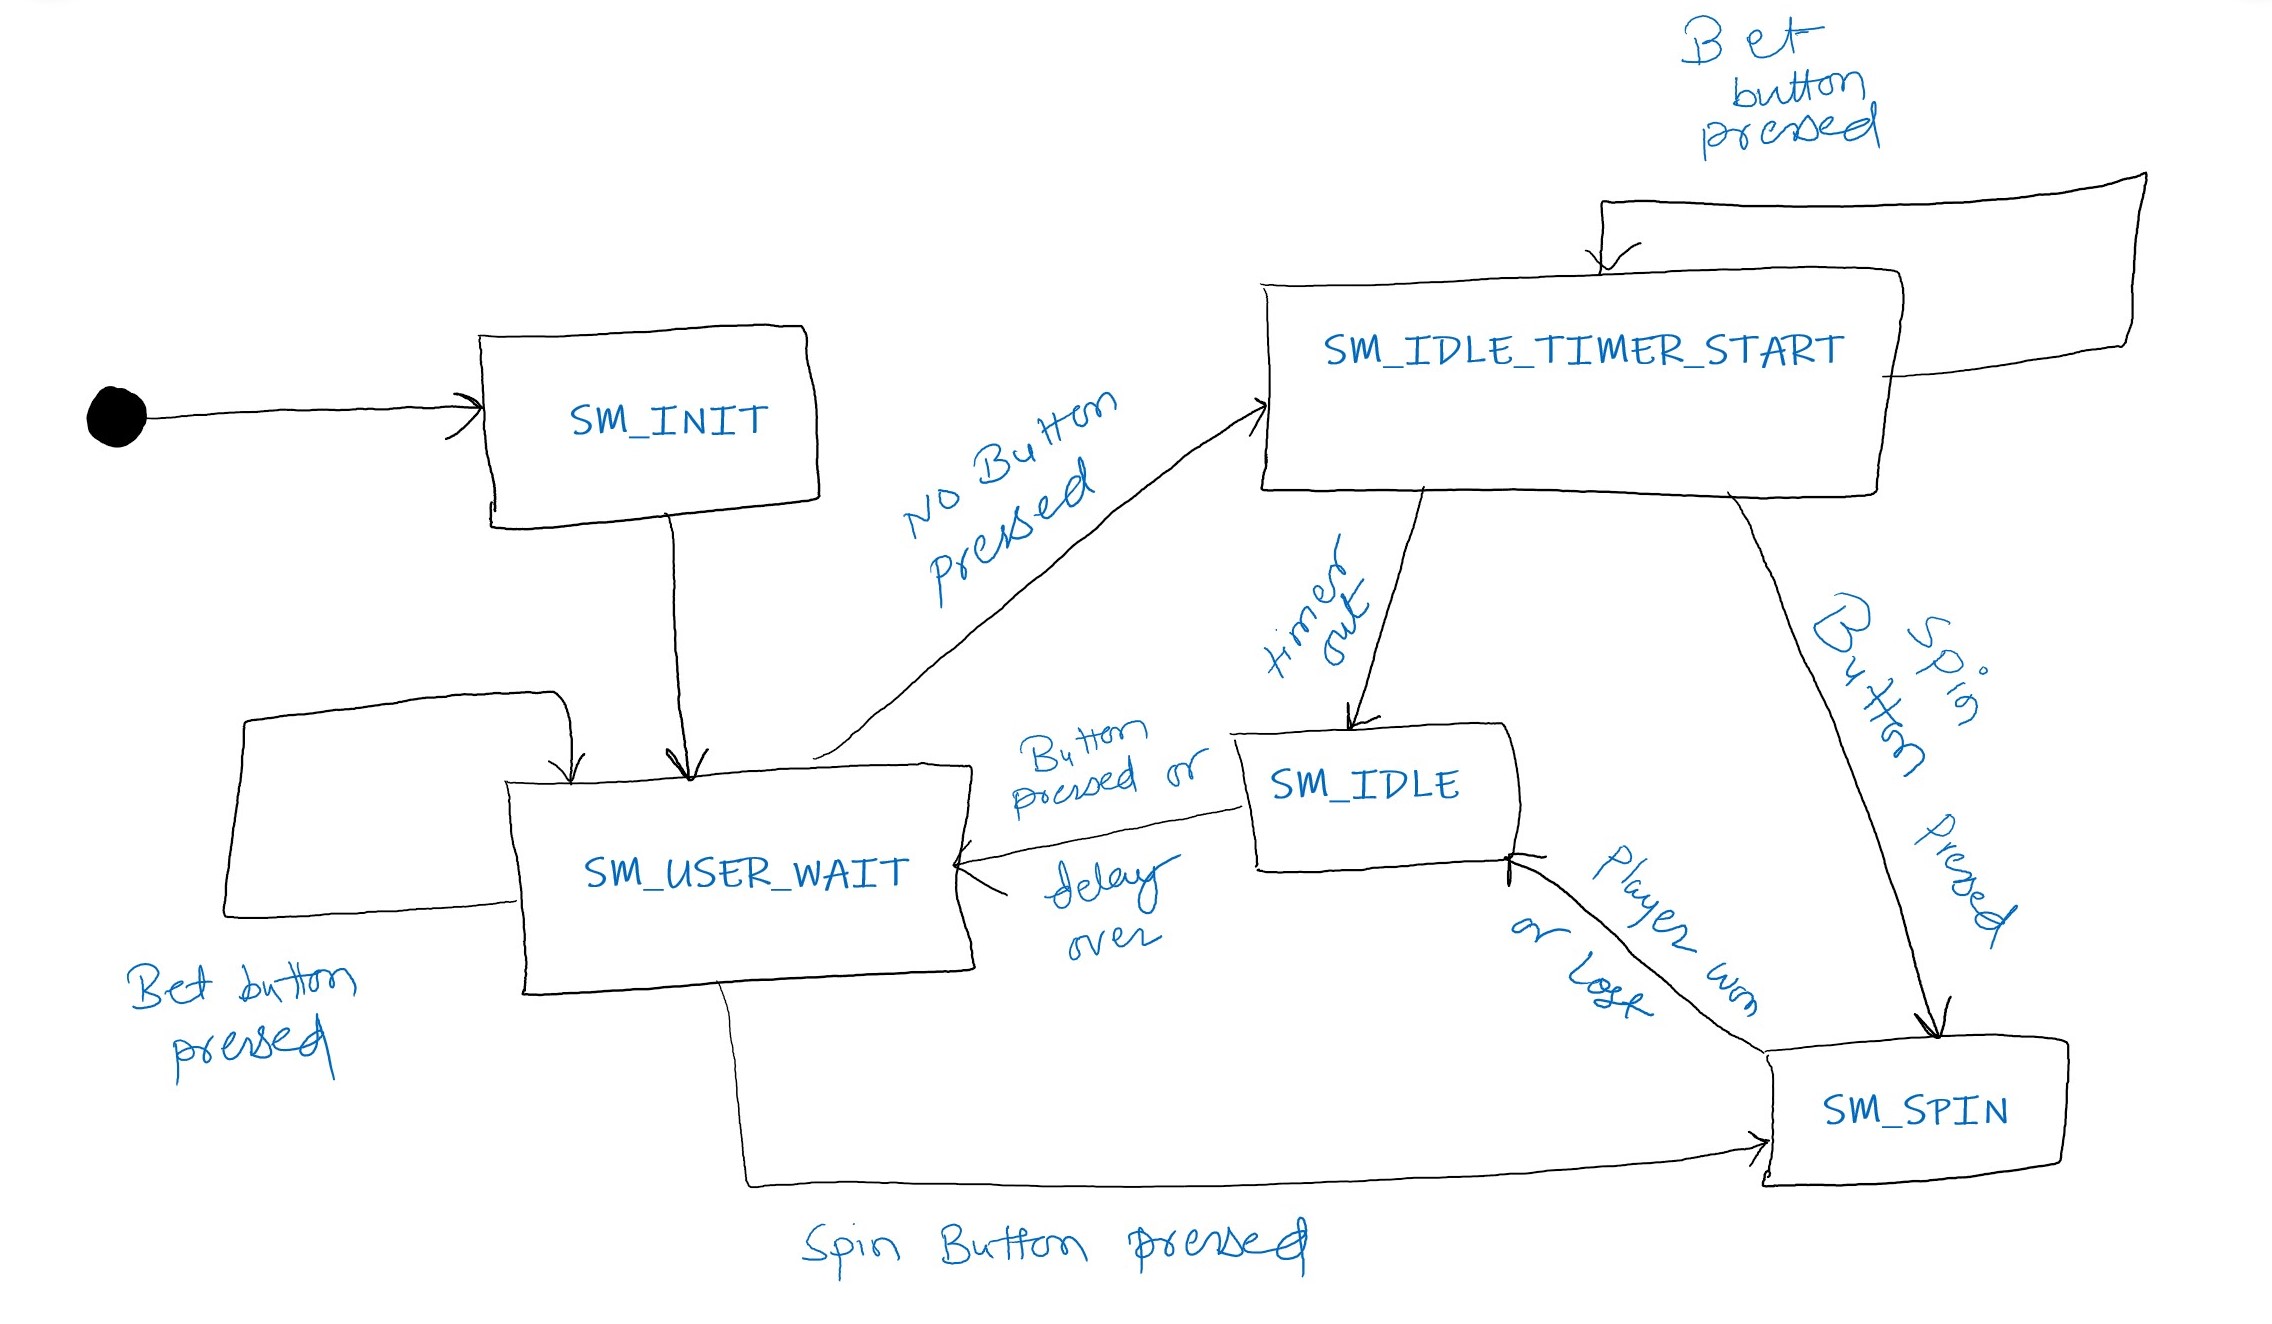 Bet
button
pressed
SM_IDLE_TIMER_START
SM_INIT
NO Button
pressed
timer
out
Spin
Button Pressed
Button
pressed or
delay
over
SM_IDLE
SM_USER_WAIT
Player won
or Lost
Bet button
pressed
SM_SPIN
Spin Button pressed